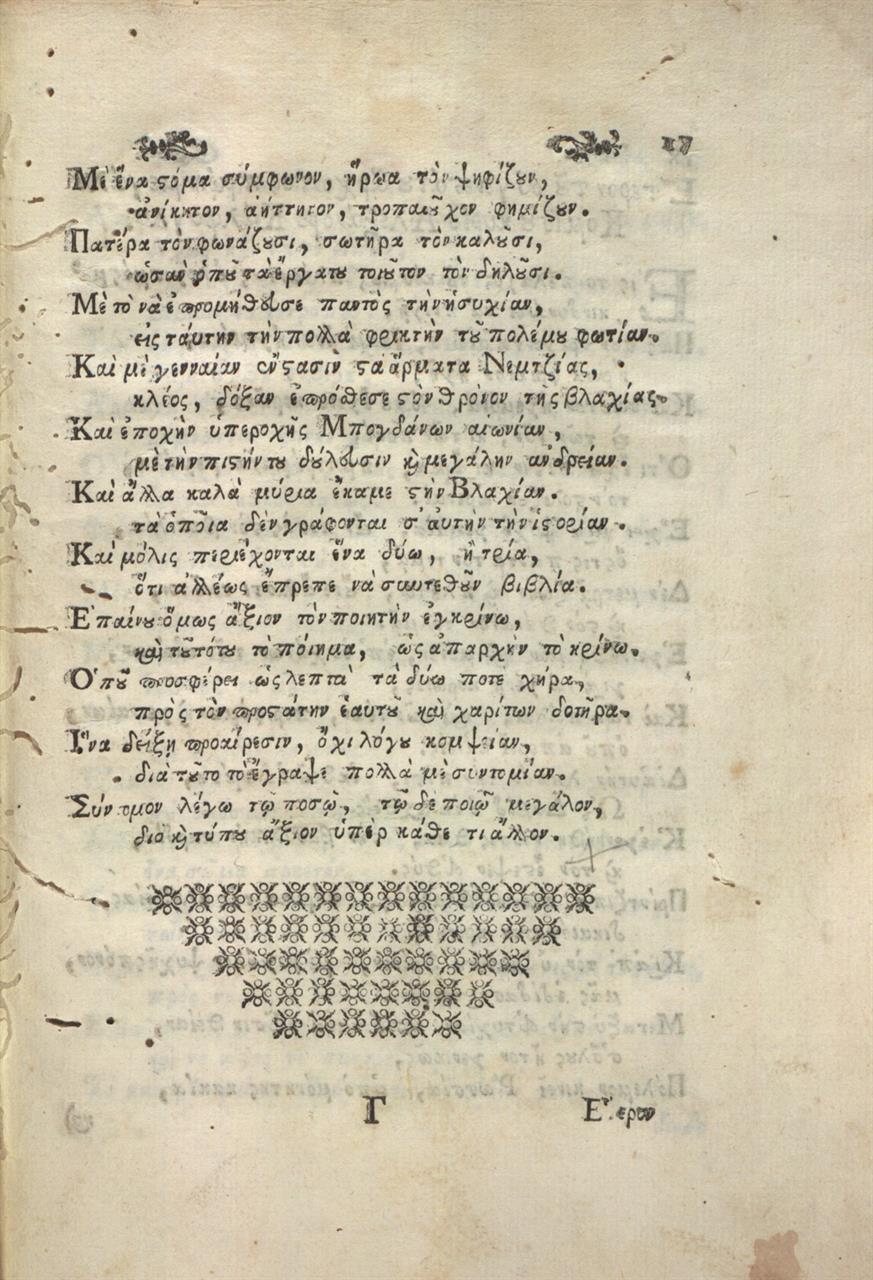 17
Μὲ ἕνα ϛόμα σύμφωνον, ἥρωα τὸν ψηφίζȣν,
ἀνίκητον, ἀήττητον, τροπαιȣ̃χον φημίζȣν.
Πατέρα τὸν φωνάζȣσι, σωτῆρα τὸν καλȣ̃σι,
ὡσὰν ὁπȣ̃ τὰ ἔργατȣ τοιȣ̃τον τὸν δηλȣ̃σι.
Μὲ τὸ νὰ ἐπρομήθευσε παντὸς τὴν ἡσυχίαν,
εἰς ταύτην τὴν πολλὰ φρικτὴν τȣ̃ πολέμȣ φωτίαν.
Καὶ μὲ γενναίαν ἔνϛασιν ϛὰ ἄρματα Νεμτζίας,
κλέος, δόξαν ἐπρόσθεσε ϛὸν θρόνον τῆς βλαχίας.
Καὶ ἐποχὴν ὑπεροχῆς Μπογδάνων αἰωνίαν,
μὲ τὴν πιϛήντȣ δȣ́λευσιν ϗ μεγάλην ἀνδρείαν.
Καὶ ἄλλα καλὰ μύρια ἔκαμε ϛὴν Βλαχίαν.
τὰ ὁποῖα δὲν γράφονται σ' αὐτὴν τὴν ἱϛορίαν.
Καὶ μόλις περιέχονται ἕνα δύω, ἢ τρία,
ὅτι ἀλλέως ἔπρεπε νὰ συντεθȣ̃ν βιβλία.
Ε'παίνȣ ὅμως ἄξιον τὸν ποιητὴν ἐγκρίνω,
καὶ τȣ̃τότȣ τὸ ποίημα, ὡς ἀπαρχὴν τὸ κρίνω.
Ο'πȣ̃ προσφέρει ὡς λεπτὰ τὰ δύω ποτε χήρα,
πρὸς τὸν προϛάτην ἑαυτȣ̃ καὶ χαρίτων δοτῆρα.
Ι῞να δείξῃ προαίρεσιν, ὄχι λόγȣ κομψείαν,
διὰ τȣ̃το τὸ ἔγραψε πολλὰ μὲ συντομίαν.
Σύντομον λέγω τῷ ποσῷ, τῷ δὲ ποιῷ μεγάλον,
διὸ ϗ τύπȣ ἄξιον ὑπὲρ κάθε τι ἄλλον.
Γ
Ε῞τερον